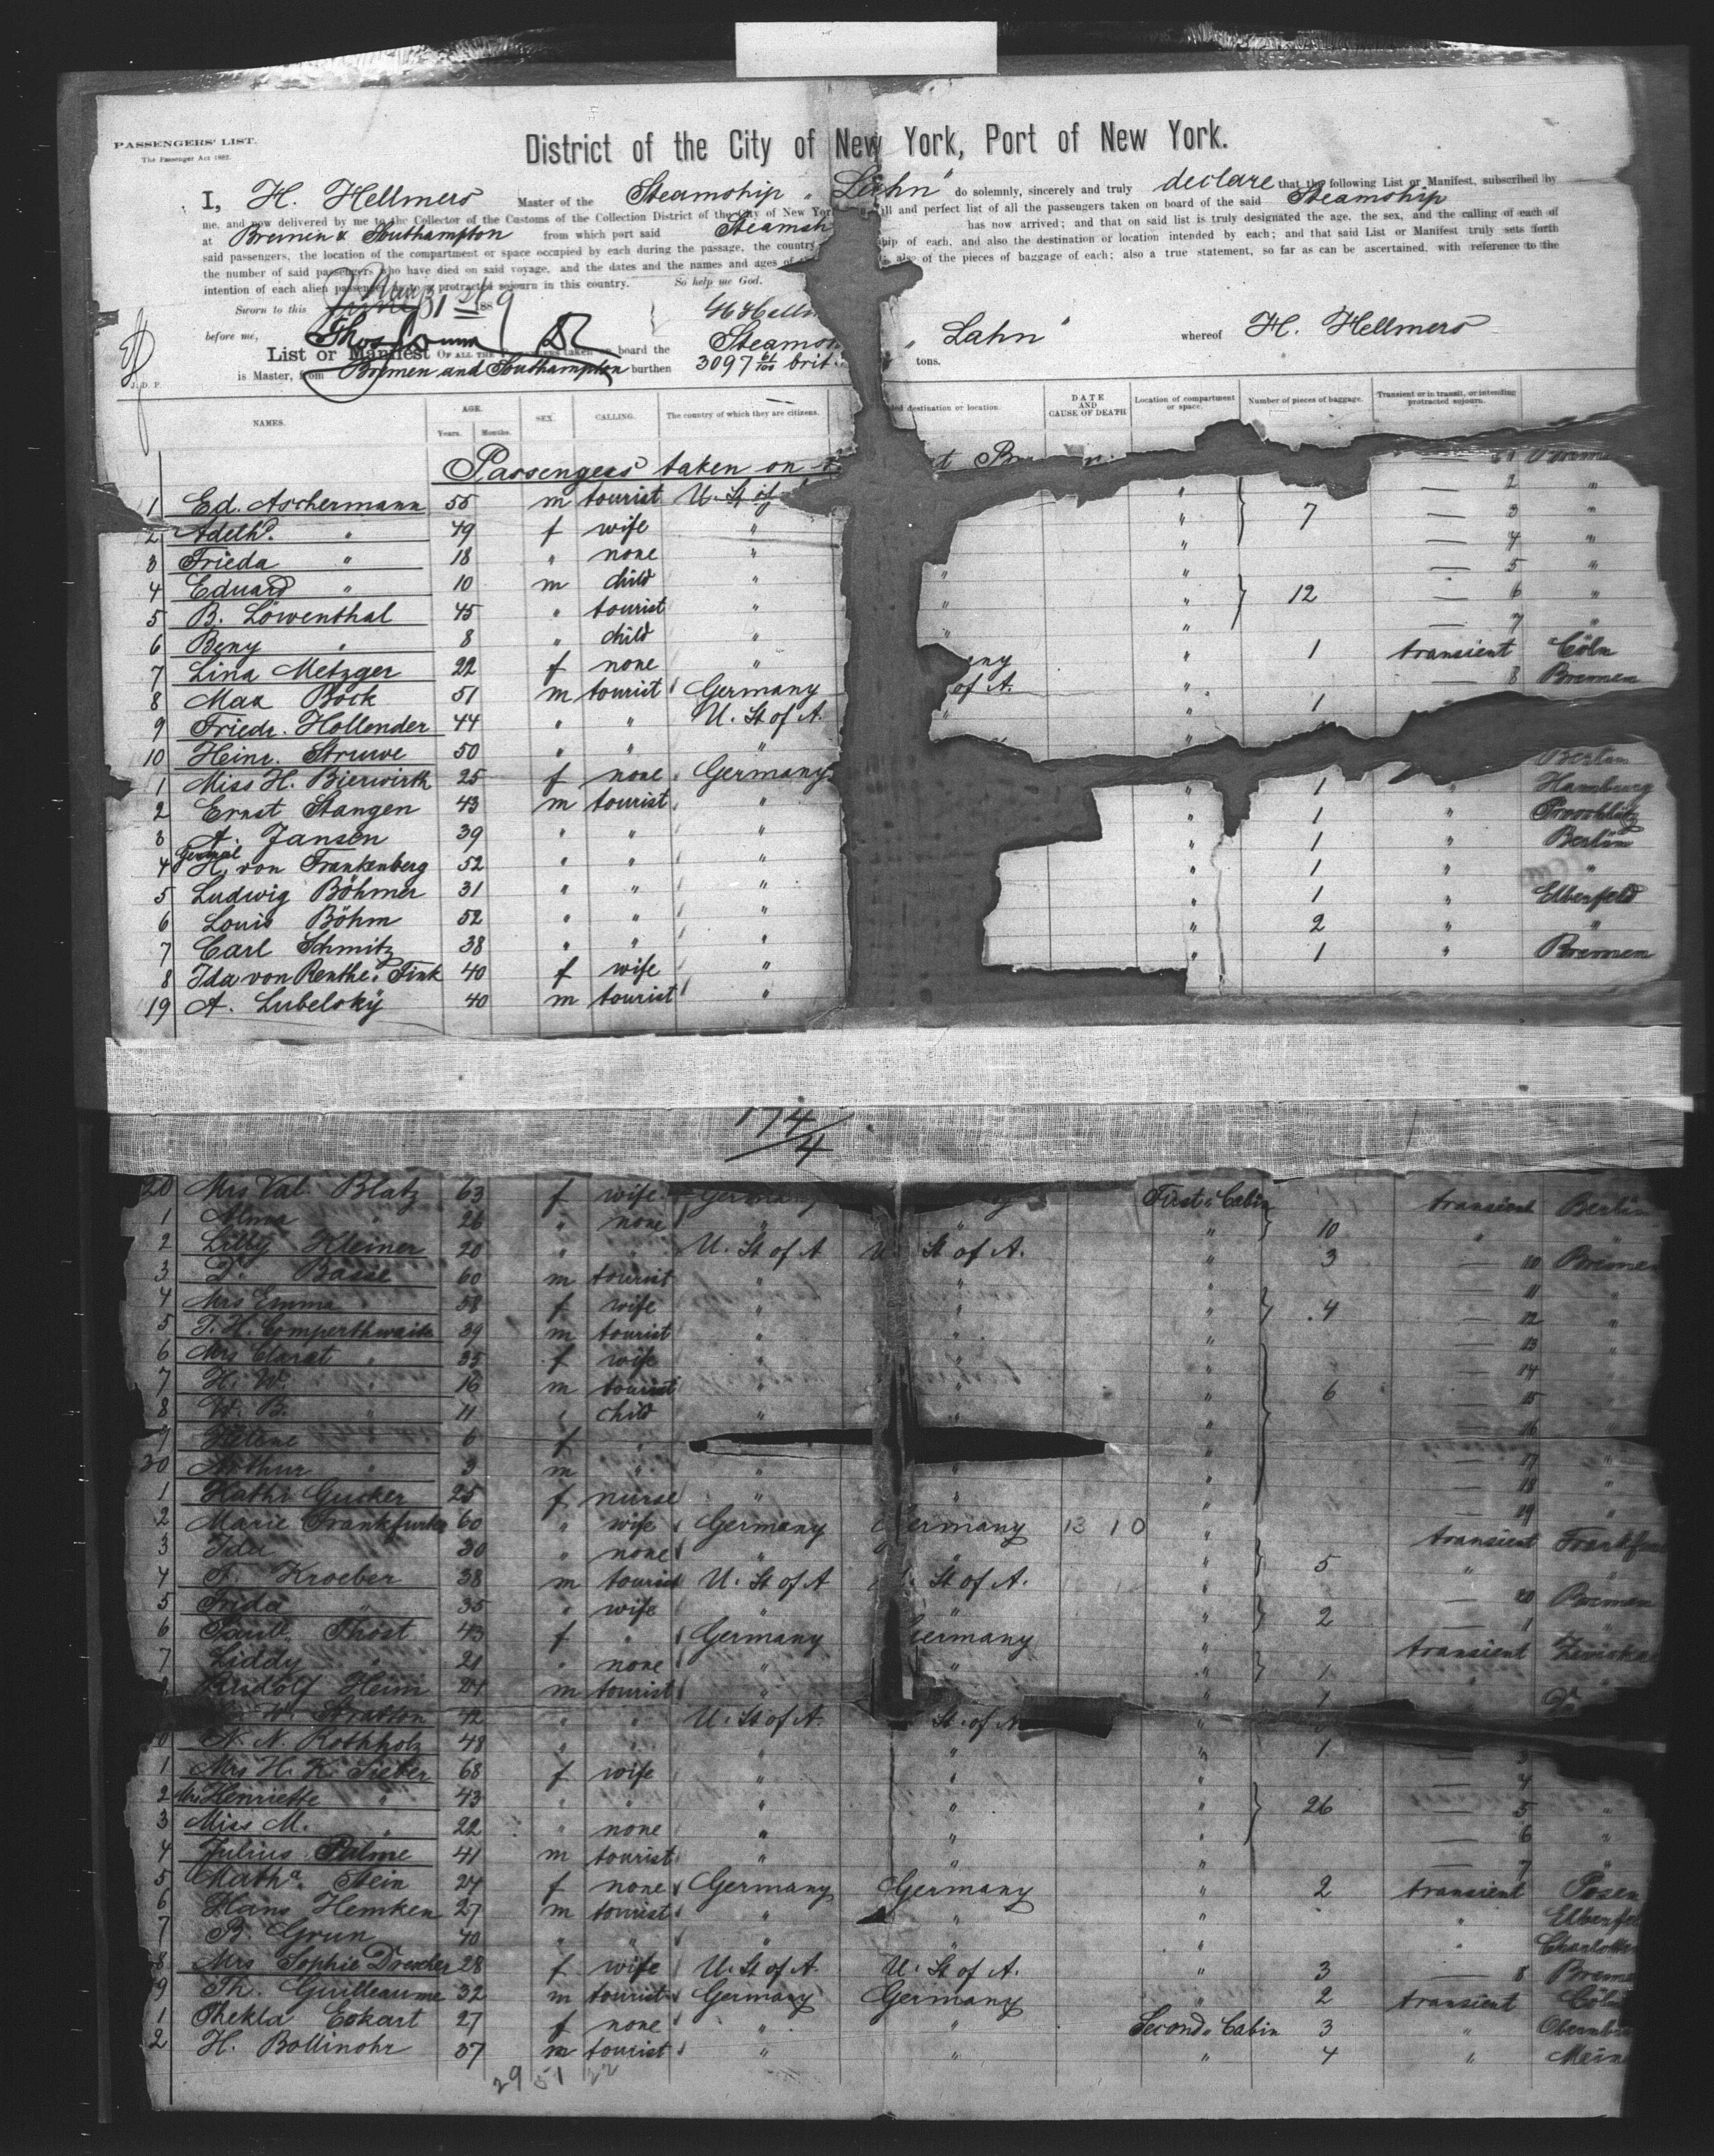 PASSENGERS' LIST.
The Passenger Act 1882.
District of the City of New York, Port of New York.
I, H. Hellmers Master of the Steamship "Lahn" do solemnly, sincerely and truly declare that the following List or Manifest, subscribed by
me, and now delivered by me to the Collector of the Customs of the Collection District of the City of New York ll and perfect list of all the passengers taken on board of the said Steamship
at Bremen & Southampton from which port said Steamsh has now arrived; and that on said list is truly designated the age, the sex, and the calling of each of
said passengers, the location of the compartment or space occupied by each during the passage, the country ship of each, and also the destination or location intended by each; and that said List or Manifest truly sets forth
the number of said passengers who have died on said voyage, and the dates and the names and ages of also of the pieces of baggage of each; also a true statement, so far as can be ascertained, with reference to the
intention of each alien passenger as to a protracted sojourn in this country. So help me God.
Sworn to this 188 9
before me,
List or Manifest OF ALL THE PASSENGERS taken on board the Steamsh "Lahn" whereof H. Hellmers
J. D. P. is Master, from Bremen and Southampton burthen 3097 61/100 brit. tons.
NAMES. AGE. Years. Months. SEX. CALLING. The country of which they are citizens. ded destination or location DATE AND CAUSE OF DEATH Location of compartment or space. Number of pieces of baggage. Transient or in transit, or intending protracted sojourn.
Passengers taken on
1 Ed. Aschermann 55 m tourist U. St of
2 Adelh. " 49 f wife " " 7 — 2 "
3 Frieda " 18 " none " " — 3 "
4 Eduard " 10 m child " " " — 4 "
5 B. Löwenthal 45 " tourist " " " 12 — 5 "
6 Beny " 8 " child " " " — 6 "
7 Lina Metzger 22 f none " " — 7 "
8 Max Bock 51 m tourist Germany any " 1 transient Cöln
9 Friedr. Hollender 44 " " U. St of A. of A. " — 8 Bremen
10 Heinr. Struwe 50 " " " " 1
1 Miss H. Bierwirth 25 f none Germany Berlin
2 Ernst Stangen 43 m tourist " " 1 " Hamburg
3 A. Jansen 39 " " " " 1 "
4 General H. von Frankenberg 52 " " " " 1 " Berlin
5 Ludwig Böhmer 31 " " " " 1 " "
6 Louis Böhm 52 " " " " 1 " Elberfeld
7 Carl Schmitz 38 " " " " 2 " "
8 Ida von Renthe. Fink 40 f wife " " 1 " Bremen
19 A. Lubelsky 40 m tourist "
174/4
20 Mrs Val. Blatz 63 f wife Germany First Cabin transient Berlin
1 Alma " 26 " none " " " 10 "
2 Lilly Kleiner 20 " " U. St of A U. St of A. " 3 — 10 Bremen
3 Basse 60 m tourist " " " — 11 "
4 Mrs Emma " 58 f wife " " " 4 — 12 "
5 T. H. Comperthwaite 39 m tourist " " " — 13 "
6 Mrs " 35 f wife " " " — 14 "
7 H. W. " 16 m tourist " " " 6 — 15 "
8 W. B. " 11 " child " " " — 16 "
9 Helene " 6 f " " — 17 "
30 Arthur " 3 m " " " " — 18 "
1 Kathi Gucker 25 f nurse " " " — 19 "
2 Marie Frankfurter 60 " wife Germany Germany 13 10 " transient Frankfu
3 Ida " 30 " none " " " 5 " "
4 Kroeber 38 m tourist U. St of A U. St of A. " — 20 Bremen
5 Frida " 35 " wife " " " 2 — 1 "
6 Thost 43 f " Germany Germany " transient Zwicka
7 Liddy " 21 " none " " " 1 " "
Rudolf Heim 21 m tourist " " " 1 "
W. Stratton 42 " " U. St of A. St. of A "
0 N. N. Rothholz 48 " " " " " 1 — 3
1 Mrs H. K. Sieber 68 f wife " " " — 4
2 Mrs Henriette " 43 " " " " " 26 — 5 "
3 Miss M. " 22 " none " " " — 6 "
4 Julius Palme 41 m tourist " " " — 7 "
5 Martha Stein 24 f none Germany Germany " 2 transient Posen
6 Hans Hemken 27 m tourist " " " " Elberfel
7 B. Grun 40 " " " " " " Charlotten
8 Mrs Sophie Drescher 28 f wife U. St of A. U. St of A. " 3 — 8 Breme
9 Th. Guilleaume 32 m tourist Germany Germany " 2 transient Cöln
1 Thekla Eckart 27 f none " " Second Cabin 3 "
2 H. Bollinohr 37 m tourist " " " 4 "
29 51 22